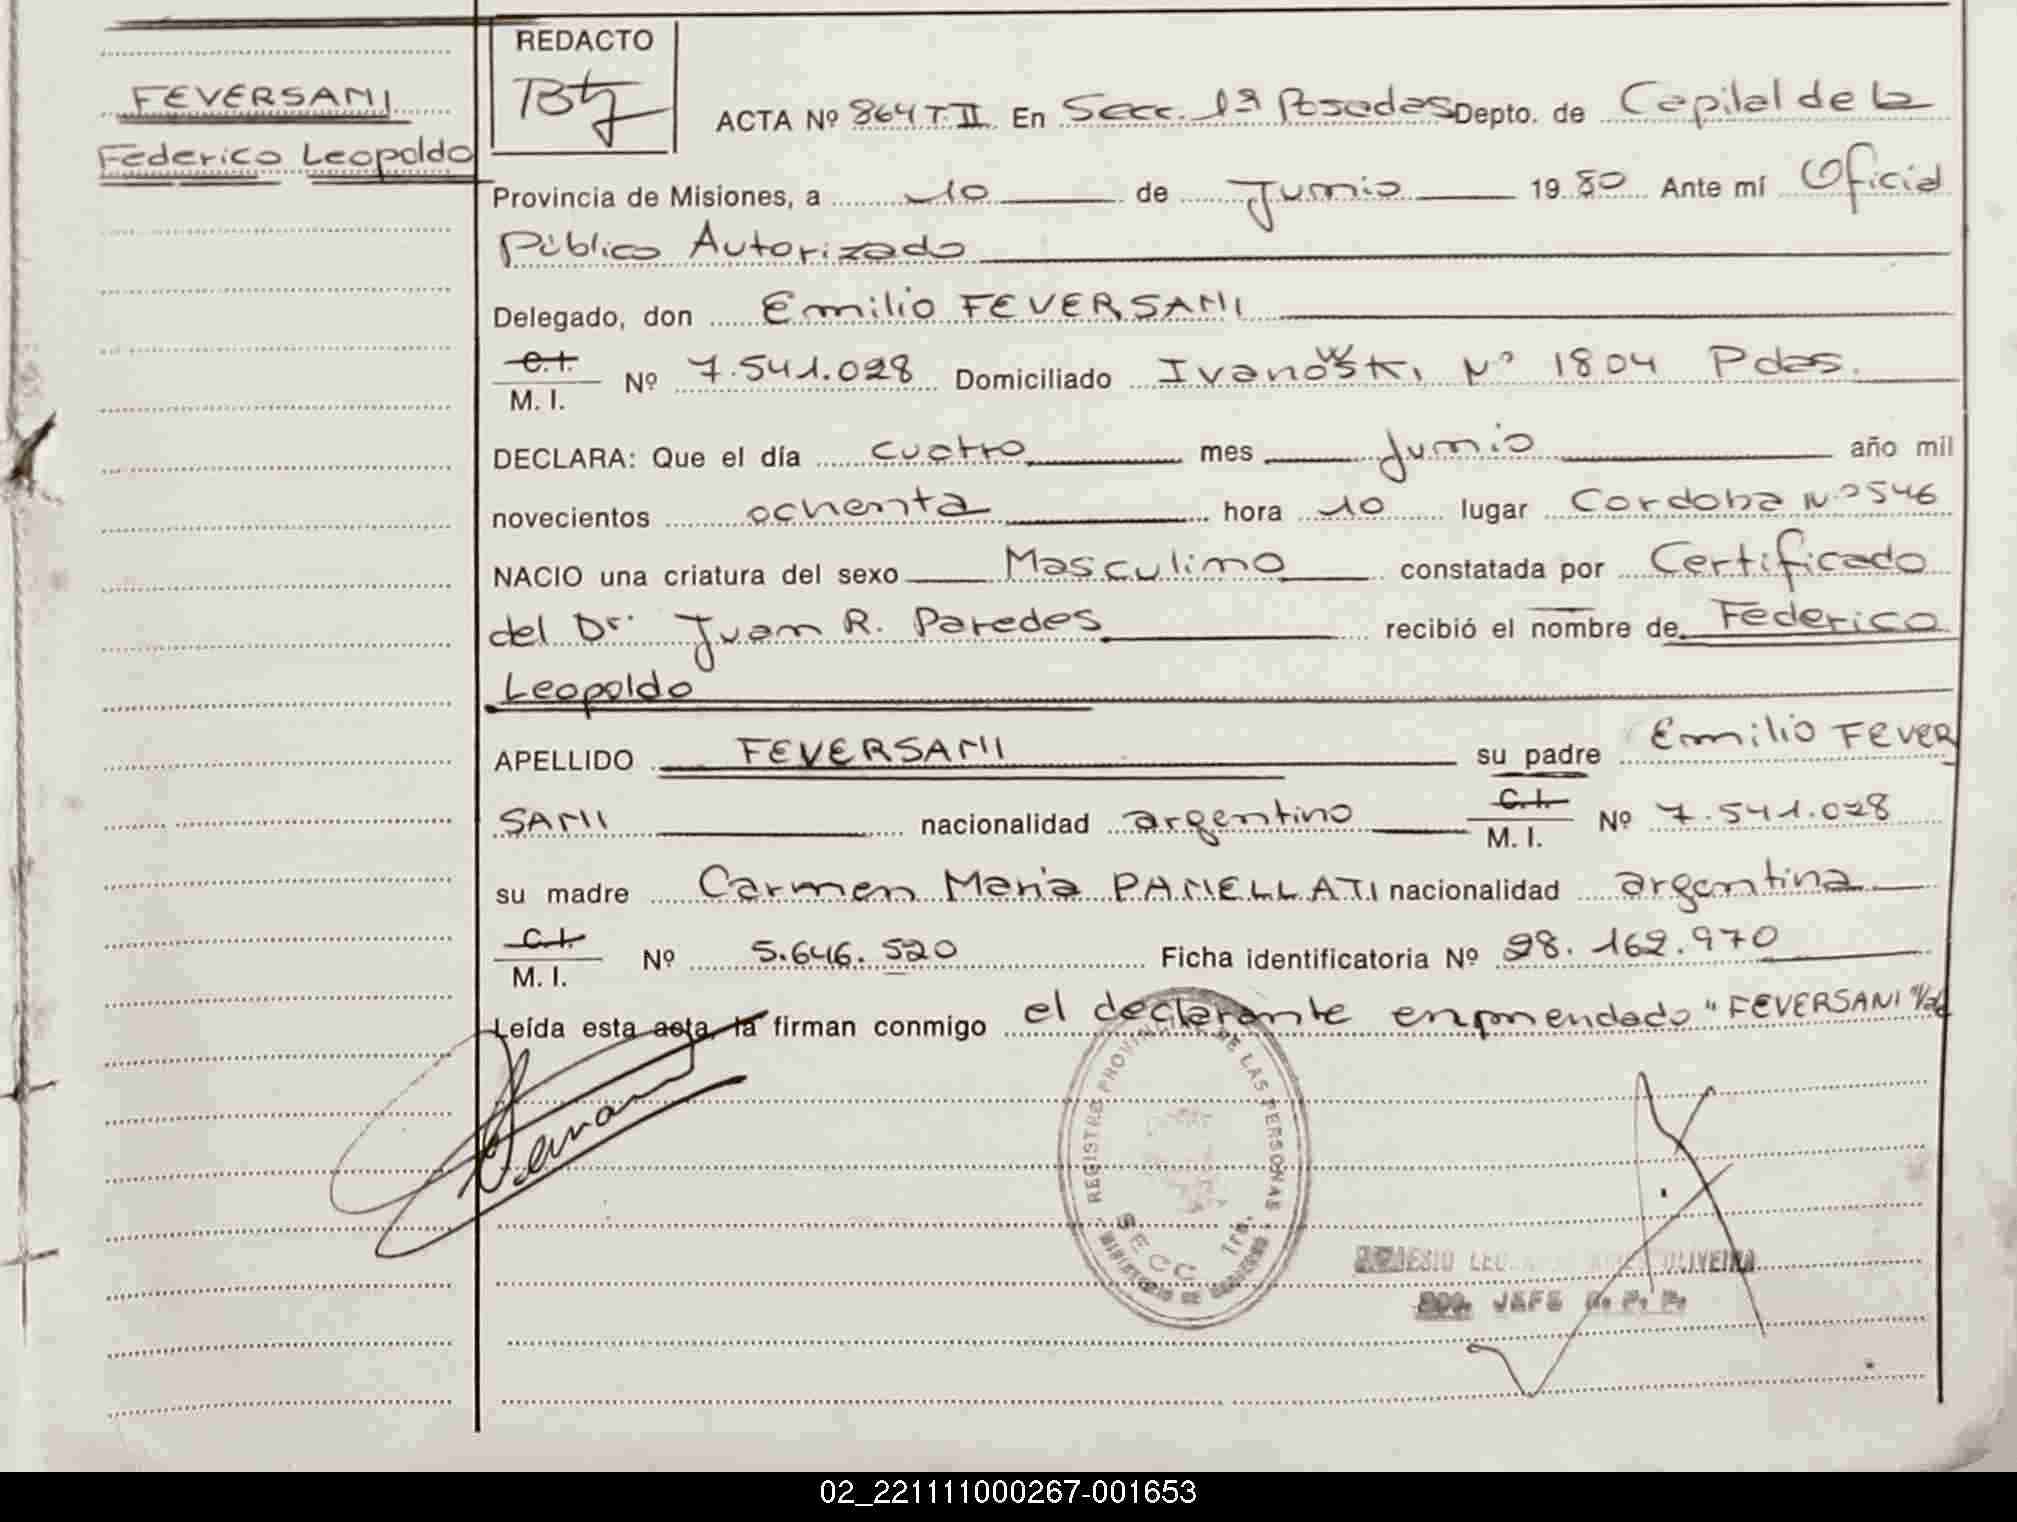 REDACTO
FEVERSANI
Federico Leopoldo
ACTA Nº 864 T. II En Secc. 1ª Posadas Depto. de Capital de la
Provincia de Misiones, a 10 de Junio 1980 Ante mí Oficial
Público Autorizado
Delegado, don Emilio FEVERSANI
C.I.
M. I. Nº 7.541.028 Domiciliado Ivanowski Nº 1804 Pdas.
DECLARA: Que el día cuatro mes Junio año mil
novecientos ochenta hora 10 lugar Cordoba Nº 546
NACIO una criatura del sexo Masculino constatada por Certificado
del Dr. Juan R. Paredes recibió el nombre de Federico
Leopoldo
APELLIDO FEVERSANI su padre Emilio FEVER
SANI nacionalidad argentino C.I. M. I. Nº 7.541.028
su madre Carmen Maria PANELLATI nacionalidad argentina
C.I.
M. I. Nº 5.646.520 Ficha identificatoria Nº 28.162.970
Leída esta acta, la firman conmigo el declarante enmendado "FEVERSANI"
REGISTRO PROVINCIAL DE LAS PERSONAS
SECC. 1ra.
MINISTERIO DE GOBIERNO
OLIVEIRA
JEFE
02_221111000267-001653